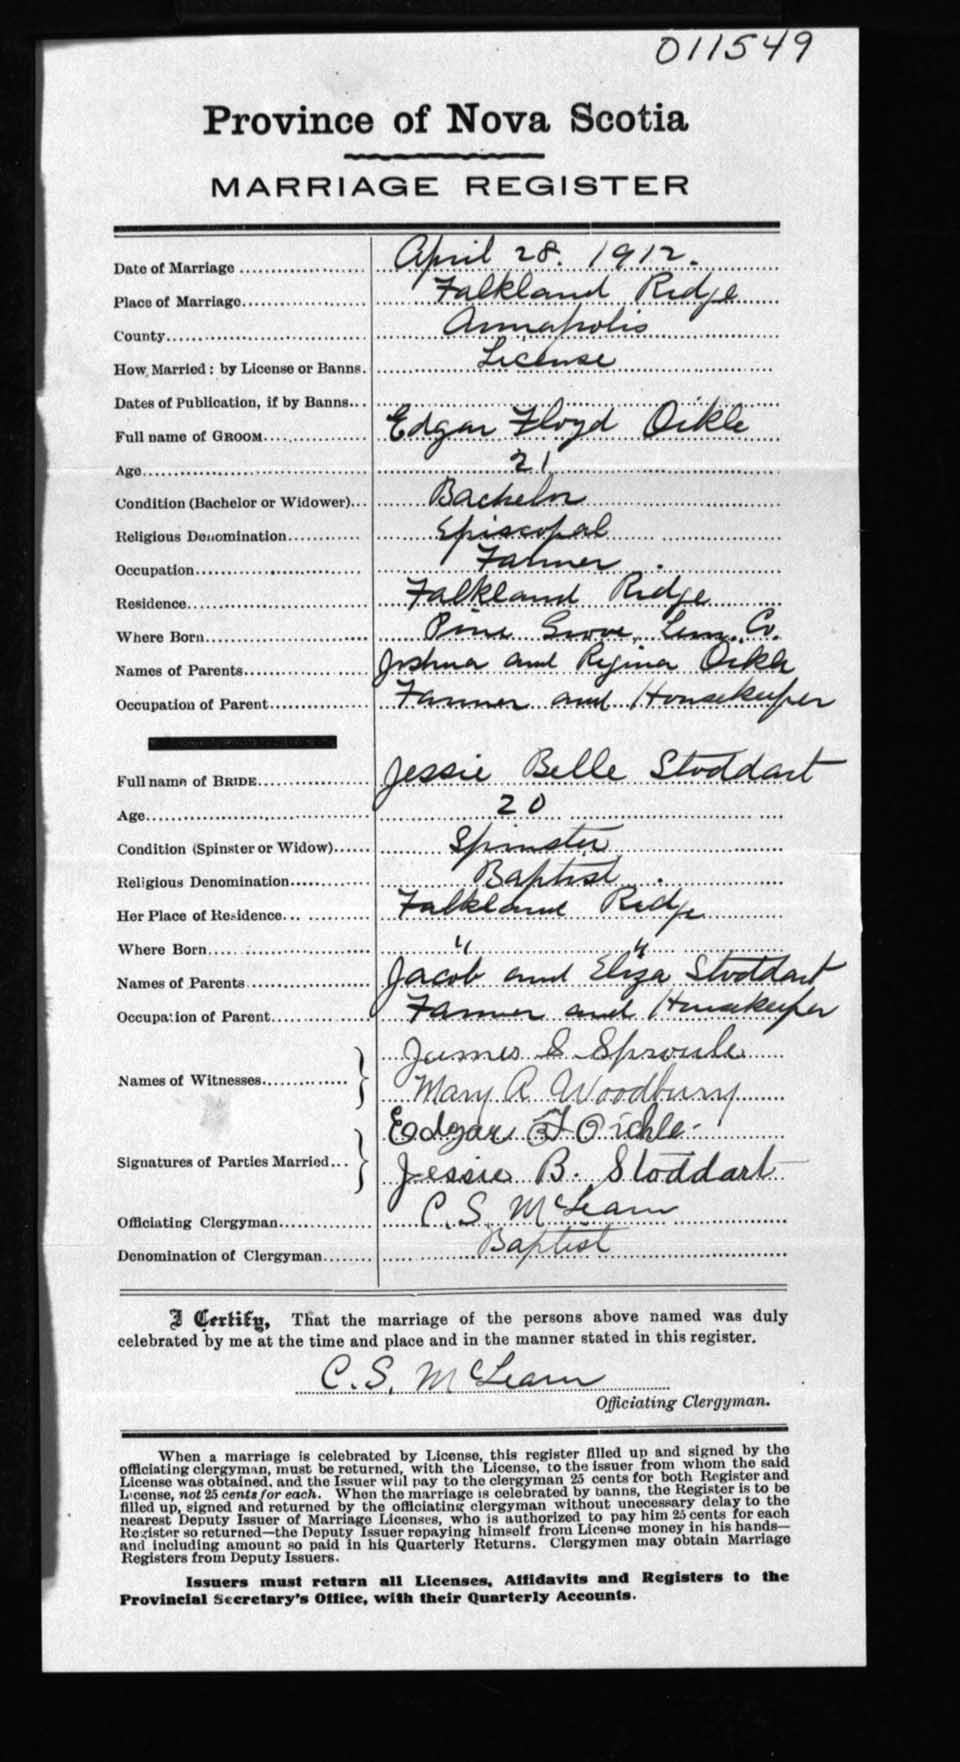 011549
Province of Nova Scotia
MARRIAGE REGISTER
Date of Marriage April 28. 1912.
Place of Marriage Falkland Ridge
County Annapolis
How Married: by License or Banns. License
Dates of Publication, if by Banns
Full name of GROOM Edgar Floyd Oikle
Age 21
Condition (Bachelor or Widower) Bachelor
Religious Denomination Episcopal
Occupation Farmer
Residence Falkland Ridge
Where Born Pine Grove, Lun. Co.
Names of Parents Joshua and Regina Oikle
Occupation of Parent Farmer and Housekeeper
Full name of BRIDE Jessie Belle Stoddart
Age 20
Condition (Spinster or Widow) Spinster
Religious Denomination Baptist
Her Place of Residence Falkland Ridge
Where Born " "
Names of Parents Jacob and Eliza Stoddart
Occupation of Parent Farmer and Housekeeper
Names of Witnesses James S Sproule
Mary A Woodbury
Signatures of Parties Married Edgar F Oickle
Jessie B. Stoddart
Officiating Clergyman C. S. McLearn
Denomination of Clergyman Baptist
I Certify, That the marriage of the persons above named was duly
celebrated by me at the time and place and in the manner stated in this register.
C. S. McLearn
Officiating Clergyman.
When a marriage is celebrated by License, this register filled up and signed by the
officiating clergyman, must be returned, with the License, to the issuer from whom the said
License was obtained, and the Issuer will pay to the clergyman 25 cents for both Register and
License, not 25 cents for each. When the marriage is celebrated by banns, the Register is to be
filled up, signed and returned by the officiating clergyman without unnecessary delay to the
nearest Deputy Issuer of Marriage Licenses, who is authorized to pay him 25 cents for each
Register so returned—the Deputy Issuer repaying himself from License money in his hands—
and including amount so paid in his Quarterly Returns. Clergymen may obtain Marriage
Registers from Deputy Issuers.
Issuers must return all Licenses, Affidavits and Registers to the
Provincial Secretary's Office, with their Quarterly Accounts.